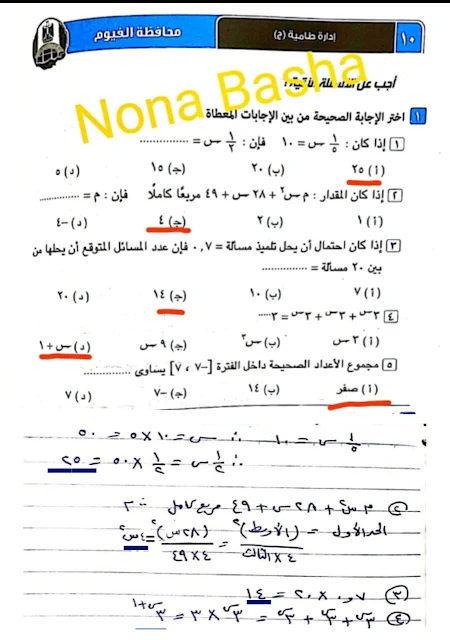 ١٠
إدارة طامية (ج)
محافظة الفيوم
أجب عن الأسئلة الآتية :
Nona Basha
١ اختر الإجابة الصحيحة من بين الإجابات المعطاة
١ إذا كان : ١/٥ س = ١٠ فإن : ١/٢ س = ..............
(أ) ٢٥ (ب) ٢٠ (ج) ١٥ (د) ٥
٢ إذا كان المقدار : م س٢ + ٢٨ س + ٤٩ مربعًا كاملًا فإن : م = ..............
(أ) ١ (ب) ٢ (ج) ٤ (د) -٤
٣ إذا كان احتمال أن يحل تلميذ مسألة = ٠,٧ فإن عدد المسائل المتوقع أن يحلها من
بين ٢٠ مسألة = ..............
(أ) ٧ (ب) ١٠ (ج) ١٤ (د) ٢٠
٤ ٣س + ٣س + ٣س = ٣.....
(أ) ٣ س (ب) س٣ (ج) ٩ س (د) س + ١
٥ مجموع الأعداد الصحيحة داخل الفترة [-٧ ، ٧] يساوى ..............
(أ) صفر (ب) ١٤ (ج) -٧ (د) ٧
١/٥ س = ١٠ ∴ س = ١٠ × ٥ = ٥٠
∴ ١/٢ س = ١/٢ × ٥٠ = ٢٥
٢ م س٢ + ٢٨ س + ٤٩ مربع كامل
الحد الأول = (الأوسط)٢ / ٤ × الثالث = (٢٨ س)٢ / ٤ × ٤٩ = ٤ س٢
٣ ٠,٧ × ٢٠ = ١٤
٤ ٣س + ٣س + ٣س = ٣ × ٣س = ٣س+١